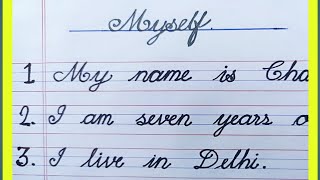 Myself.
1 My name is Cha
2. I am seven years o
3. I live in Delhi.